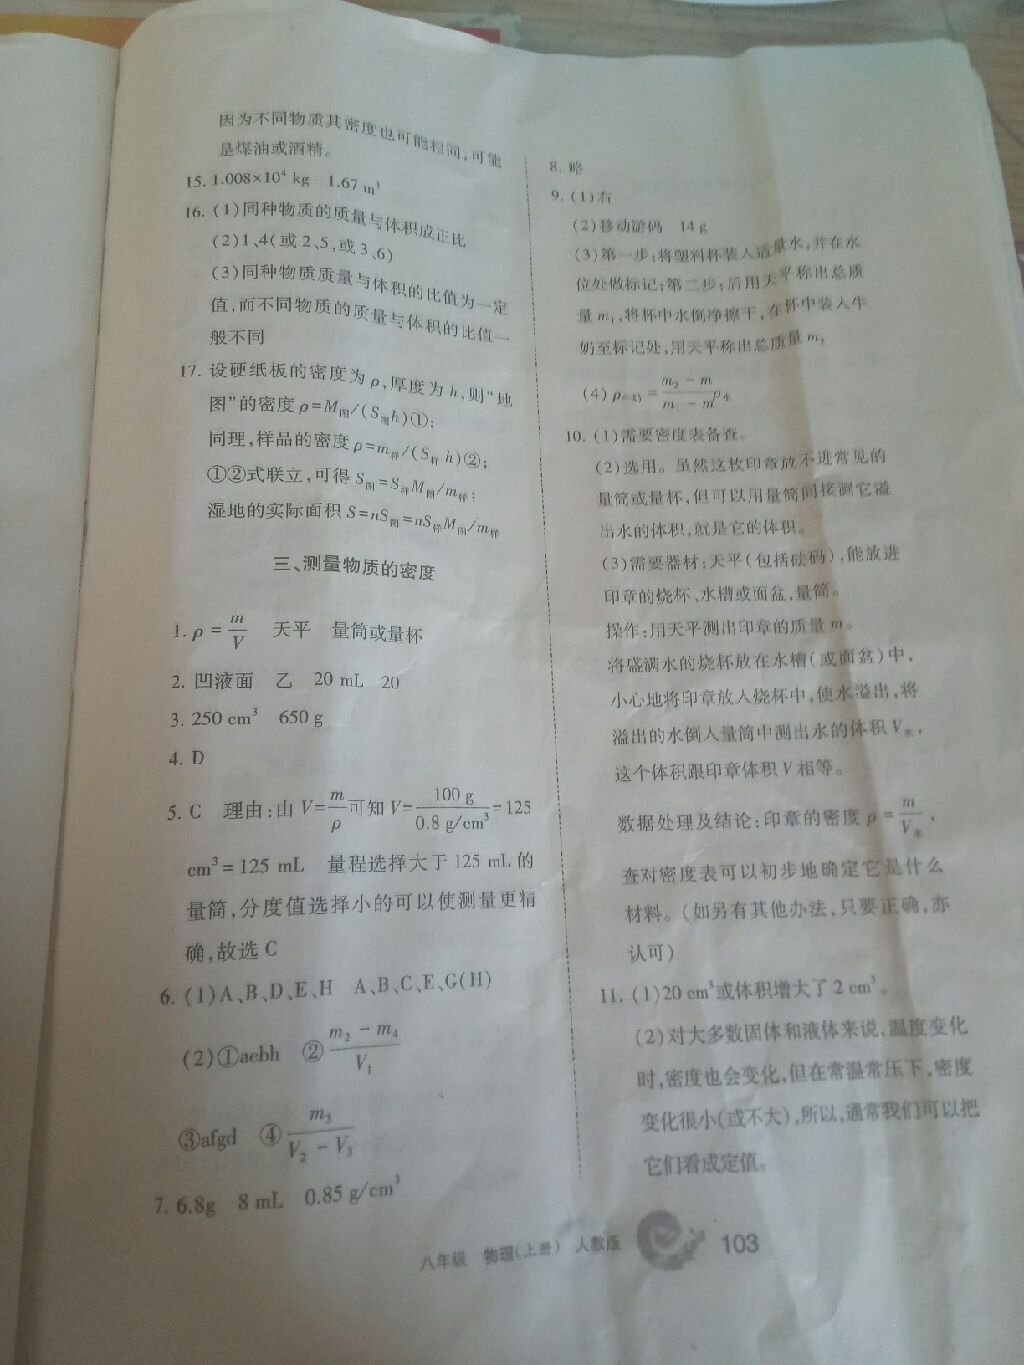 因为不同物质其密度也可能相同,可能
是煤油或酒精。
15. 1.008×10⁴ kg 1.67 m³
16. (1)同种物质的质量与体积成正比
(2)1、4(或2、5,或3、6)
(3)同种物质质量与体积的比值为一定
值,而不同物质的质量与体积的比值一
般不同
17. 设硬纸板的密度为ρ,厚度为h,则“地
图”的密度ρ=M图/(S图h)①;
同理,样品的密度ρ=m样/(S样h)②;
①②式联立,可得S图=S样M图/m样;
湿地的实际面积S=nS图=nS样M图/m样
三、测量物质的密度
1. ρ=m/V 天平 量筒或量杯
2. 凹液面 乙 20 mL 20
3. 250 cm³ 650 g
4. D
5. C 理由:由V=m/ρ可知V=100 g/0.8 g/cm³=125
cm³=125 mL 量程选择大于125 mL的
量筒,分度值选择小的可以使测量更精
确,故选C
6. (1)A、B、D、E、H A、B、C、E、G(H)
(2)①aebh ②(m₂-m₄)/V₁
③afgd ④m₃/(V₂-V₃)
7. 6.8g 8 mL 0.85 g/cm³
8. 略
9. (1)右
(2)移动游码 14 g
(3)第一步:将塑料杯装入适量水,并在水
位处做标记;第二步:后用天平称出总质
量m₁,将杯中水倒净擦干,在杯中装入牛
奶至标记处,用天平称出总质量m₂
(4)ρ牛奶=(m₂-m)/(m₁-m)ρ水
10. (1)需要密度表备查。
(2)选用。虽然这枚印章放不进常见的
量筒或量杯,但可以用量筒间接测它溢
出水的体积,就是它的体积。
(3)需要器材:天平(包括砝码),能放进
印章的烧杯、水槽或面盆,量筒。
操作:用天平测出印章的质量m。
将盛满水的烧杯放在水槽(或面盆)中,
小心地将印章放入烧杯中,使水溢出,将
溢出的水倒入量筒中测出水的体积V水,
这个体积跟印章体积V相等。
数据处理及结论:印章的密度ρ=m/V水,
查对密度表可以初步地确定它是什么
材料。(如另有其他办法,只要正确,亦
认可)
11. (1)20 cm³或体积增大了2 cm³。
(2)对大多数固体和液体来说,温度变化
时,密度也会变化,但在常温常压下,密度
变化很小(或不大),所以,通常我们可以把
它们看成定值。
八年级 物理(上册) 人教版 103